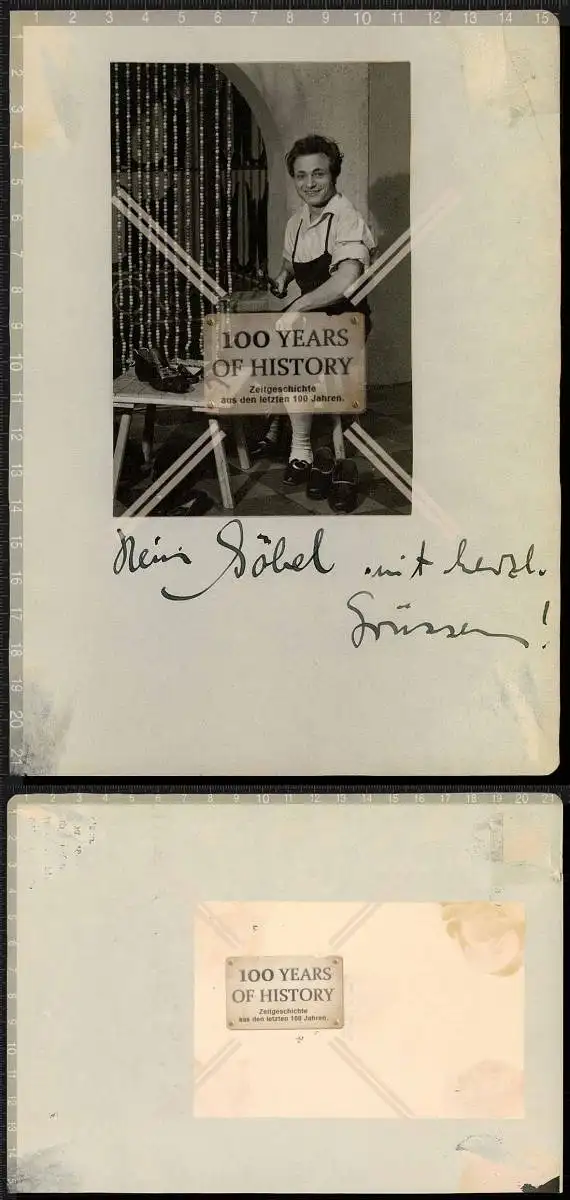 1 2 3 4 5 6 7 8 9 10 11 12 13 14 15
1 2 3 4 5 6 7 8 9 10 11 12 13 14 15 16 17 18 19 20 21
100 YEARS
OF HISTORY
Zeitgeschichte
aus den letzten 100 Jahren.
Göbel mit herzl.
Grüssen!
2 3 4 5 6 7 8 9 10 11 12 13 14 15 16 17 18 19 20 21
100 YEARS
OF HISTORY
Zeitgeschichte
aus den letzten 100 Jahren.